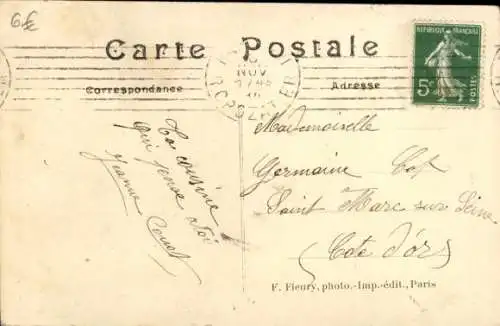 6€
Carte Postale
Correspondance
Adresse
RÉPUBLIQUE FRANÇAISE
5c
POSTES
NOV
Ta cousine
qui pense à toi
Jeanne
Mademoiselle
Germaine
Saint Marc sur Seine
(Cote d'or)
F. Fleury, photo.-Imp.-édit., Paris